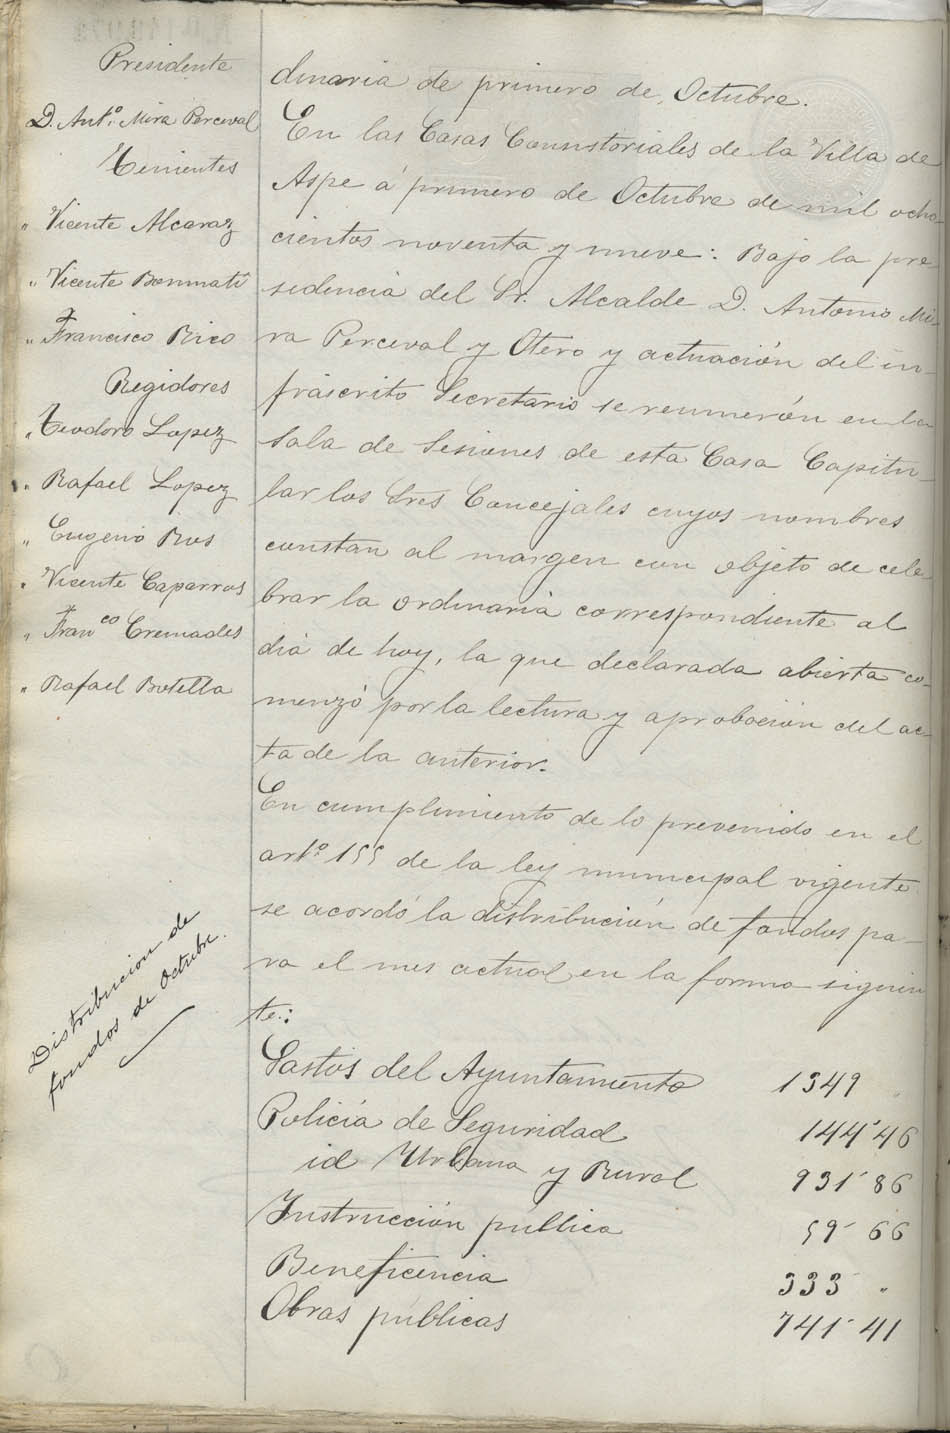 Presidente
D. Ant.º Mira Perceval
Tenientes
" Vicente Alcaraz
" Vicente Bonmatí
" Francisco Rico
Regidores
" Teodoro Lopez
" Rafael Lopez
" Eugenio Ros
" Vicente Caparros
" Fran^co Cremades
" Rafael Botella
Distribucion de
fondos de Octubre.
dinaria de primero de Octubre.
En las Casas Consistoriales de la Villa de
Aspe á primero de Octubre de mil ocho-
cientos noventa y nueve: Bajo la pre-
sidencia del Sr. Alcalde D. Antonio Mi-
ra Perceval y Otero y actuación del in-
frascrito Secretario se reunierón en la
Sala de Sesiones de esta Casa Capitu-
lar los Sres Concejales cuyos nombres
constan al margen con objeto de cele-
brar la ordinaria correspondiente al
dia de hoy, la que declarada abierta co-
menzó por la lectura y aprobación del ac-
ta de la anterior.
En cumplimiento de lo prevenido en el
artº. 155 de la ley municipal vigente
se acordó la distribución de fondos pa-
ra el mes actual en la forma siguien
te:
Gastos del Ayuntamiento 1349 "
Policía de Seguridad 144'46
id Urbana y Rural 931'86
Instrucción pública 59'66
Beneficencia 333 "
Obras públicas 741'41